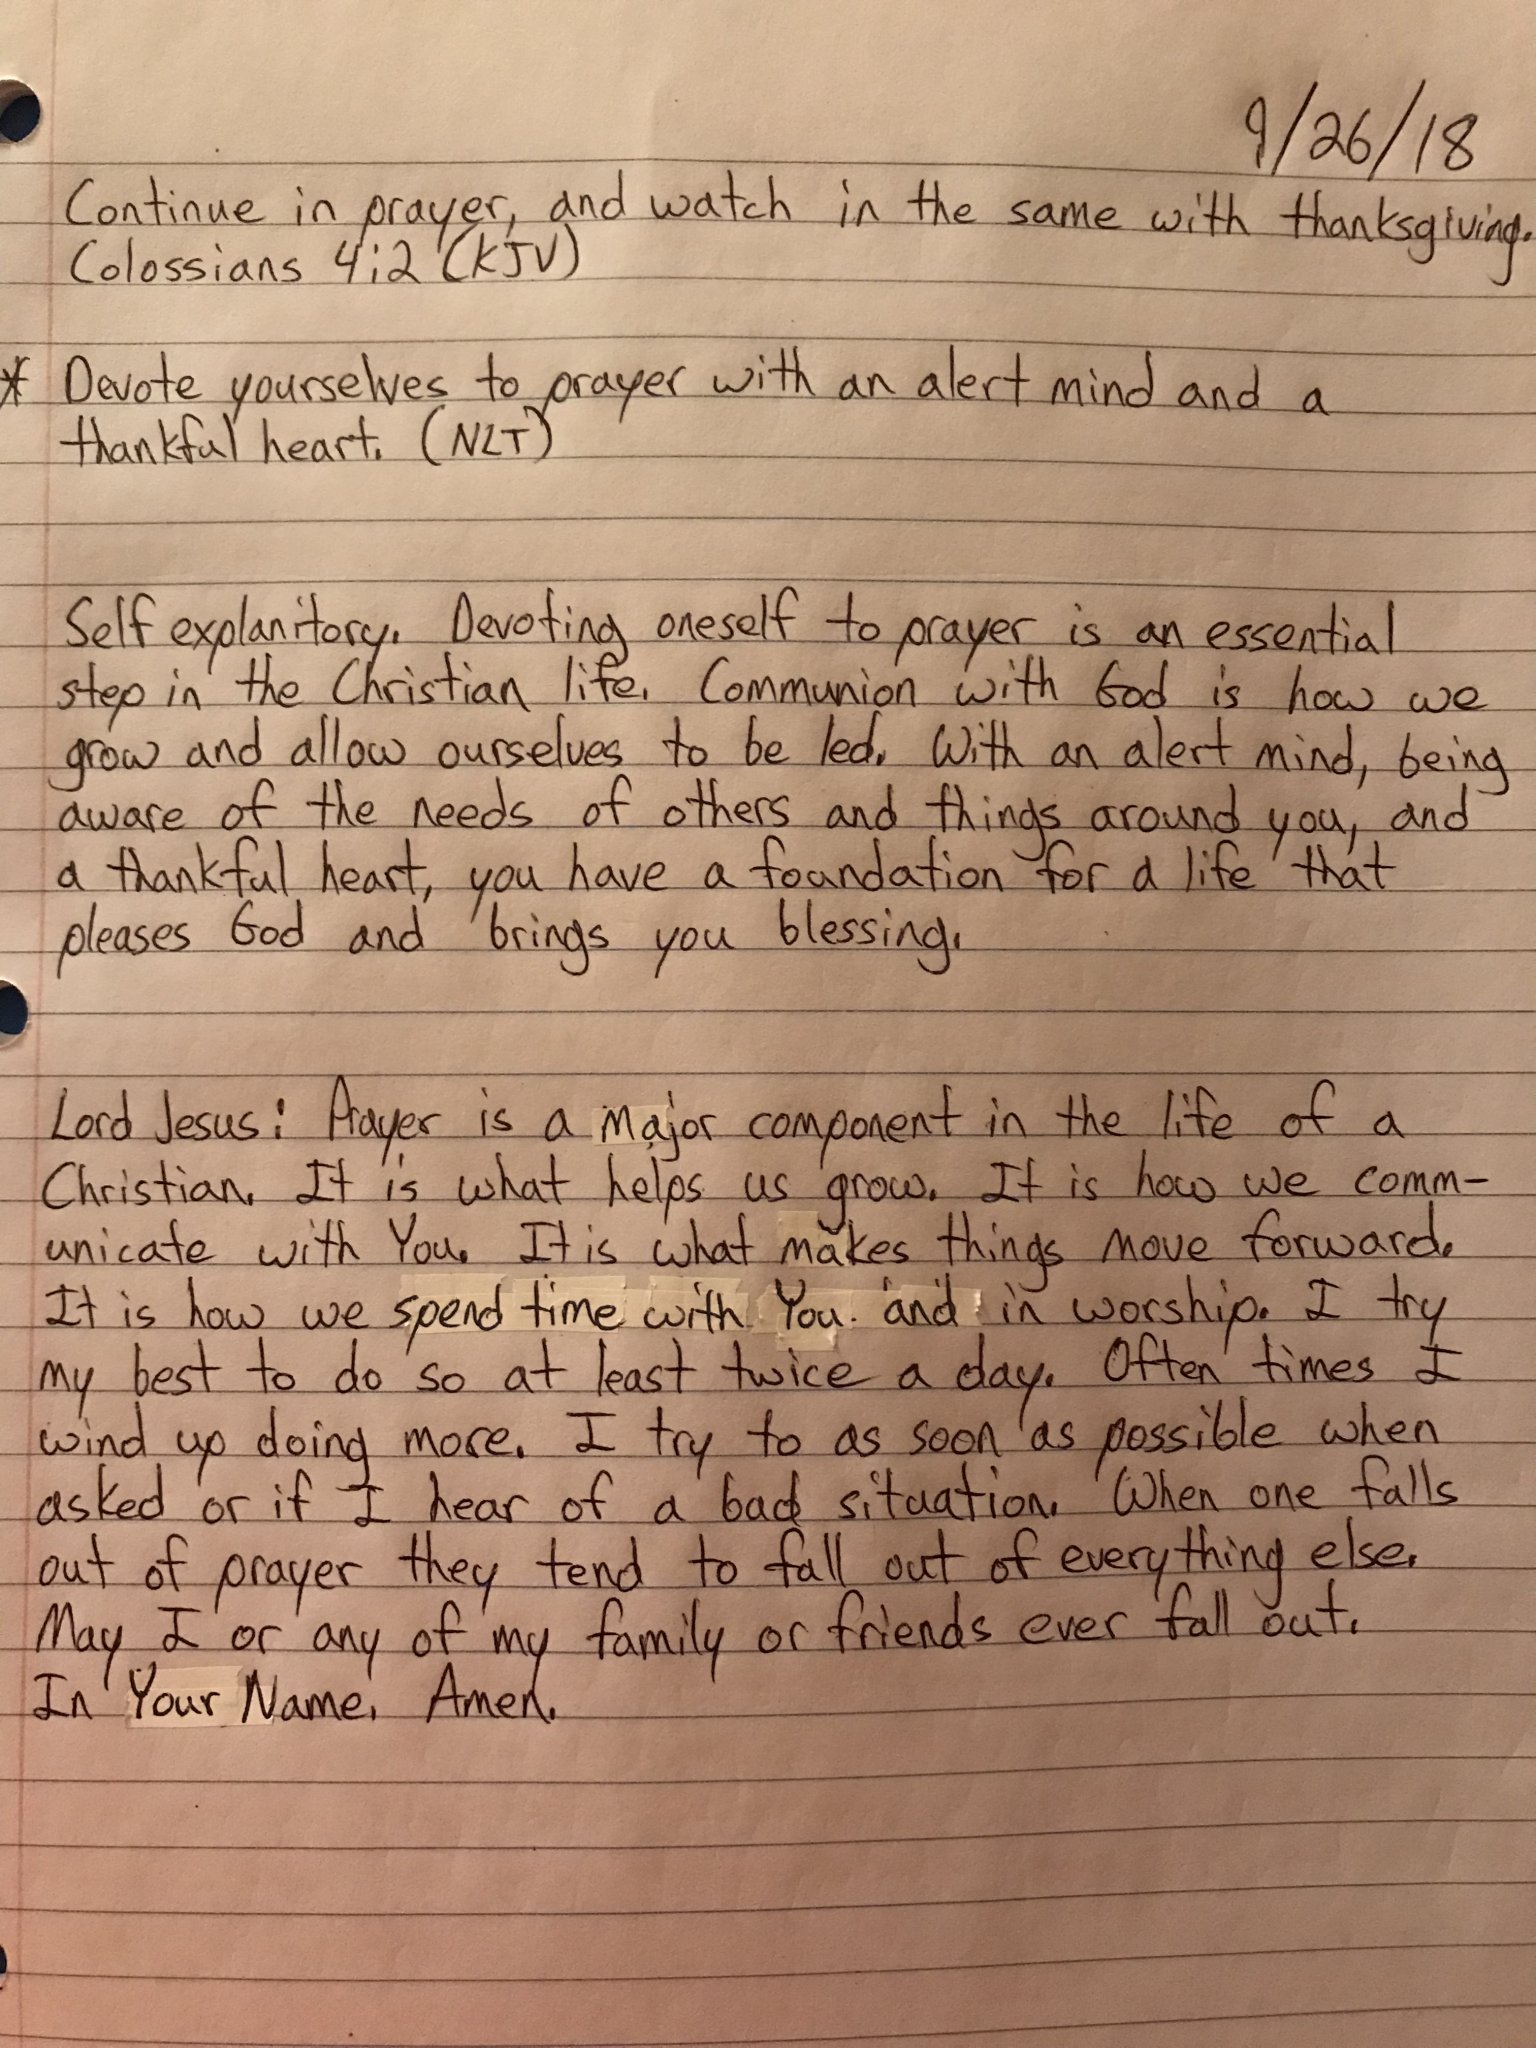 9/26/18
Continue in prayer, and watch in the same with thanksgiving.
Colossians 4:2 (KJV)
* Devote yourselves to prayer with an alert mind and a
thankful heart. (NLT)
Self explanitory. Devoting oneself to prayer is an essential
step in the Christian life. Communion with God is how we
grow and allow ourselves to be led. With an alert mind, being
aware of the needs of others and things around you, and
a thankful heart, you have a foundation for a life that
pleases God and brings you blessing.
Lord Jesus: Prayer is a major component in the life of a
Christian. It is what helps us grow. It is how we comm-
unicate with You. It is what makes things move forward.
It is how we spend time with You and in worship. I try
my best to do so at least twice a day. Often times I
wind up doing more. I try to as soon as possible when
asked or if I hear of a bad situation. When one falls
out of prayer they tend to fall out of everything else.
May I or any of my family or friends ever fall out.
In Your Name. Amen.